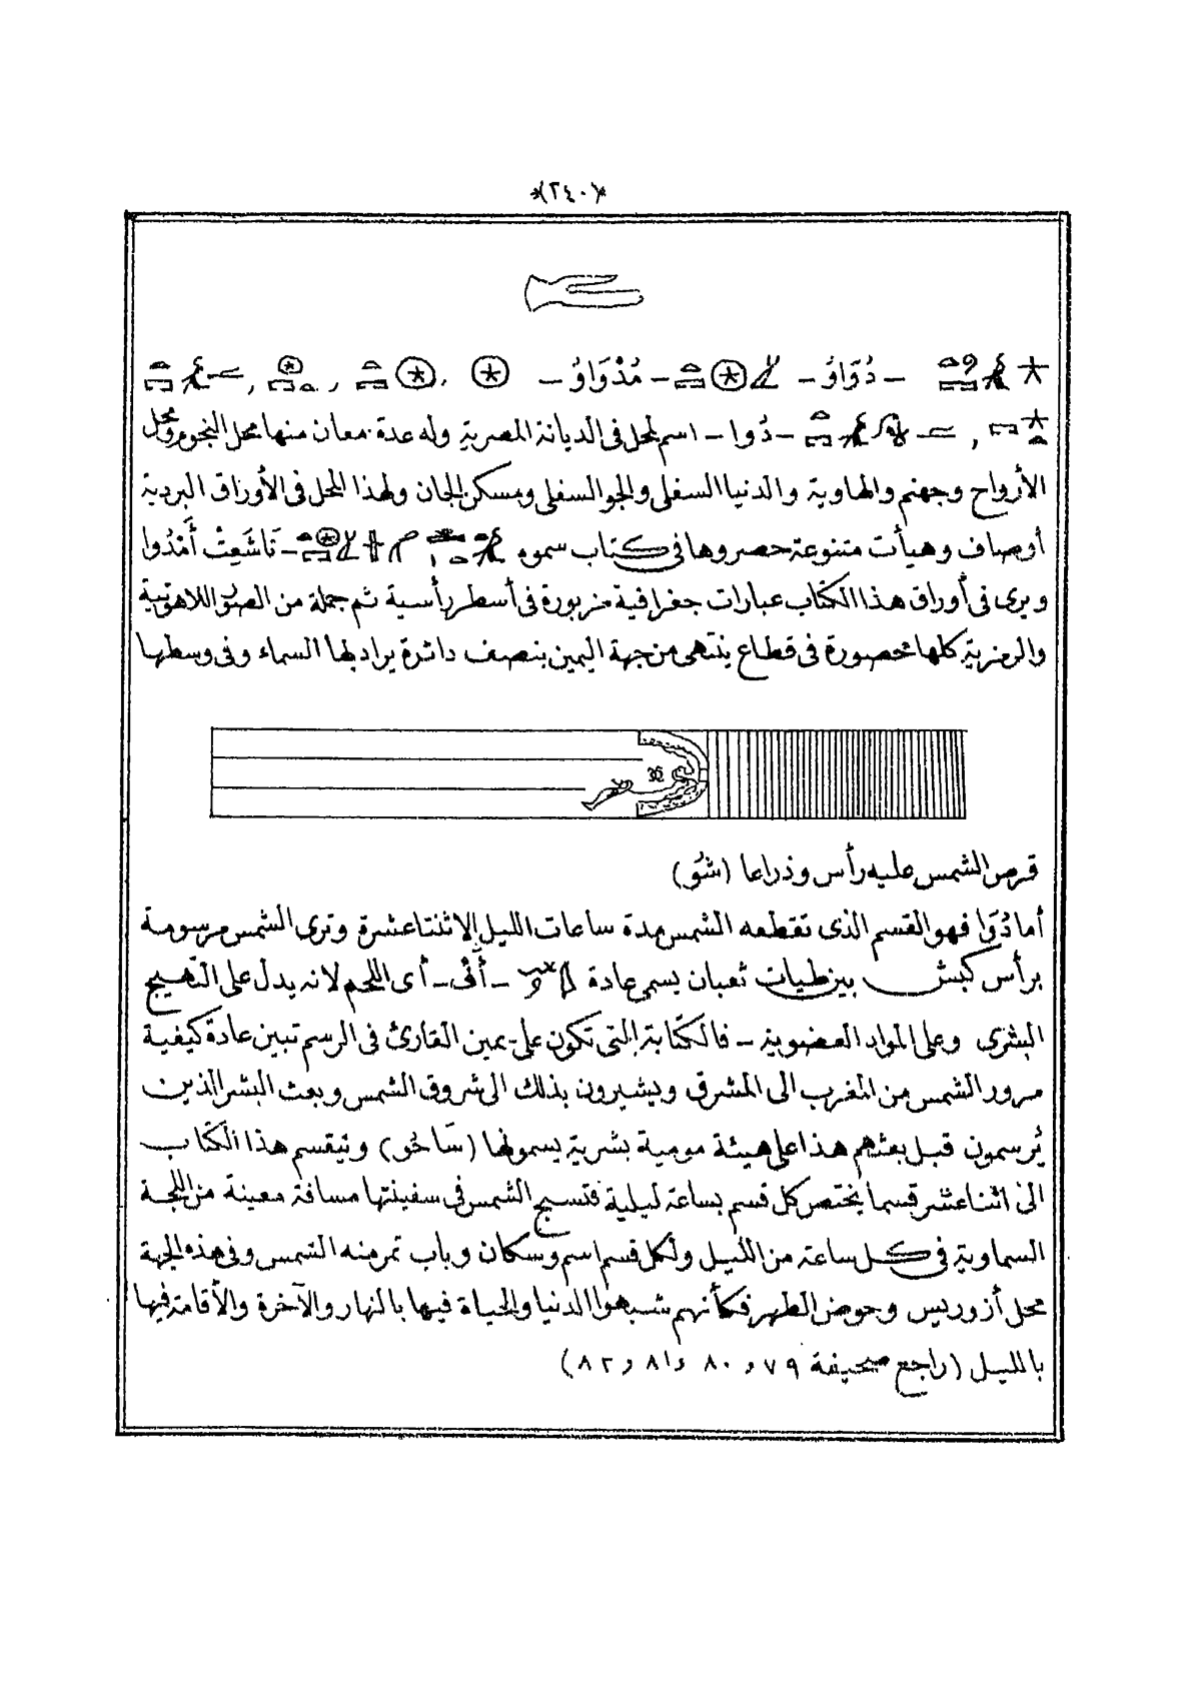 *(٢٤٠)*
- دُوَاوُ - - مُدْوَاوُ -
- دُوا - اسم لمحل فى الديانة المصرية وله عدة معان منها محل النجوم ومحل
الأرواح وجهنم والهاوية والدنيا السفلى والجو السفلى ومسكن الجان ولهذا المحل فى الأوراق البردية
أوصاف وهيأت متنوعة حصروها فى كتاب سموه - تَاشَعِتْ أَمْدُوا
ويرى فى أوراق هذا الكتاب عبارات جغرافية مزبورة فى أسطر رأسية ثم جملة من الصور اللاهوتية
والرمزية كلها محصورة فى قطاع ينتهى من جهة اليمين بنصف دائرة يراد بها السماء وفى وسطها
قرص الشمس عليه رأس وذراعا (شُو)
أما دُوَا فهو القسم الذى تقطعه الشمس مدة ساعات الليل الاثنتا عشرة وترى الشمس مرسومة
برأس كبش بين طيات ثعبان يسمى عادة - أَفْ - أى اللحم لانه يدل على التهييج
البشرى وعلى المواد العضوية - فالكتابة التى تكون على يمين القارئ فى الرسم تبين عادة كيفية
مرور الشمس من المغرب الى المشرق ويشيرون بذلك الى شروق الشمس وبعث البشر الذين
يُرسمون قبل بعثهم هذا على هيئة مومية بشرية يسمونها (سَاحُو) وينقسم هذا الكتاب
الى اثنا عشر قسما يختص كل قسم بساعة ليلية فتسبح الشمس فى سفينتها مسافة معينة من اللجة
السماوية فى كل ساعة من الليل ولكل قسم اسم وسكان وباب تمر منه الشمس وفى هذه الجهة
محل أزوريس وحوض الطهر فكأنهم شبهوا الدنيا والحياة فيها بالنهار والآخرة والأقامة فيها
بالليل (راجع صحيفة ٧٩ و ٨٠ و ٨١ و ٨٢)